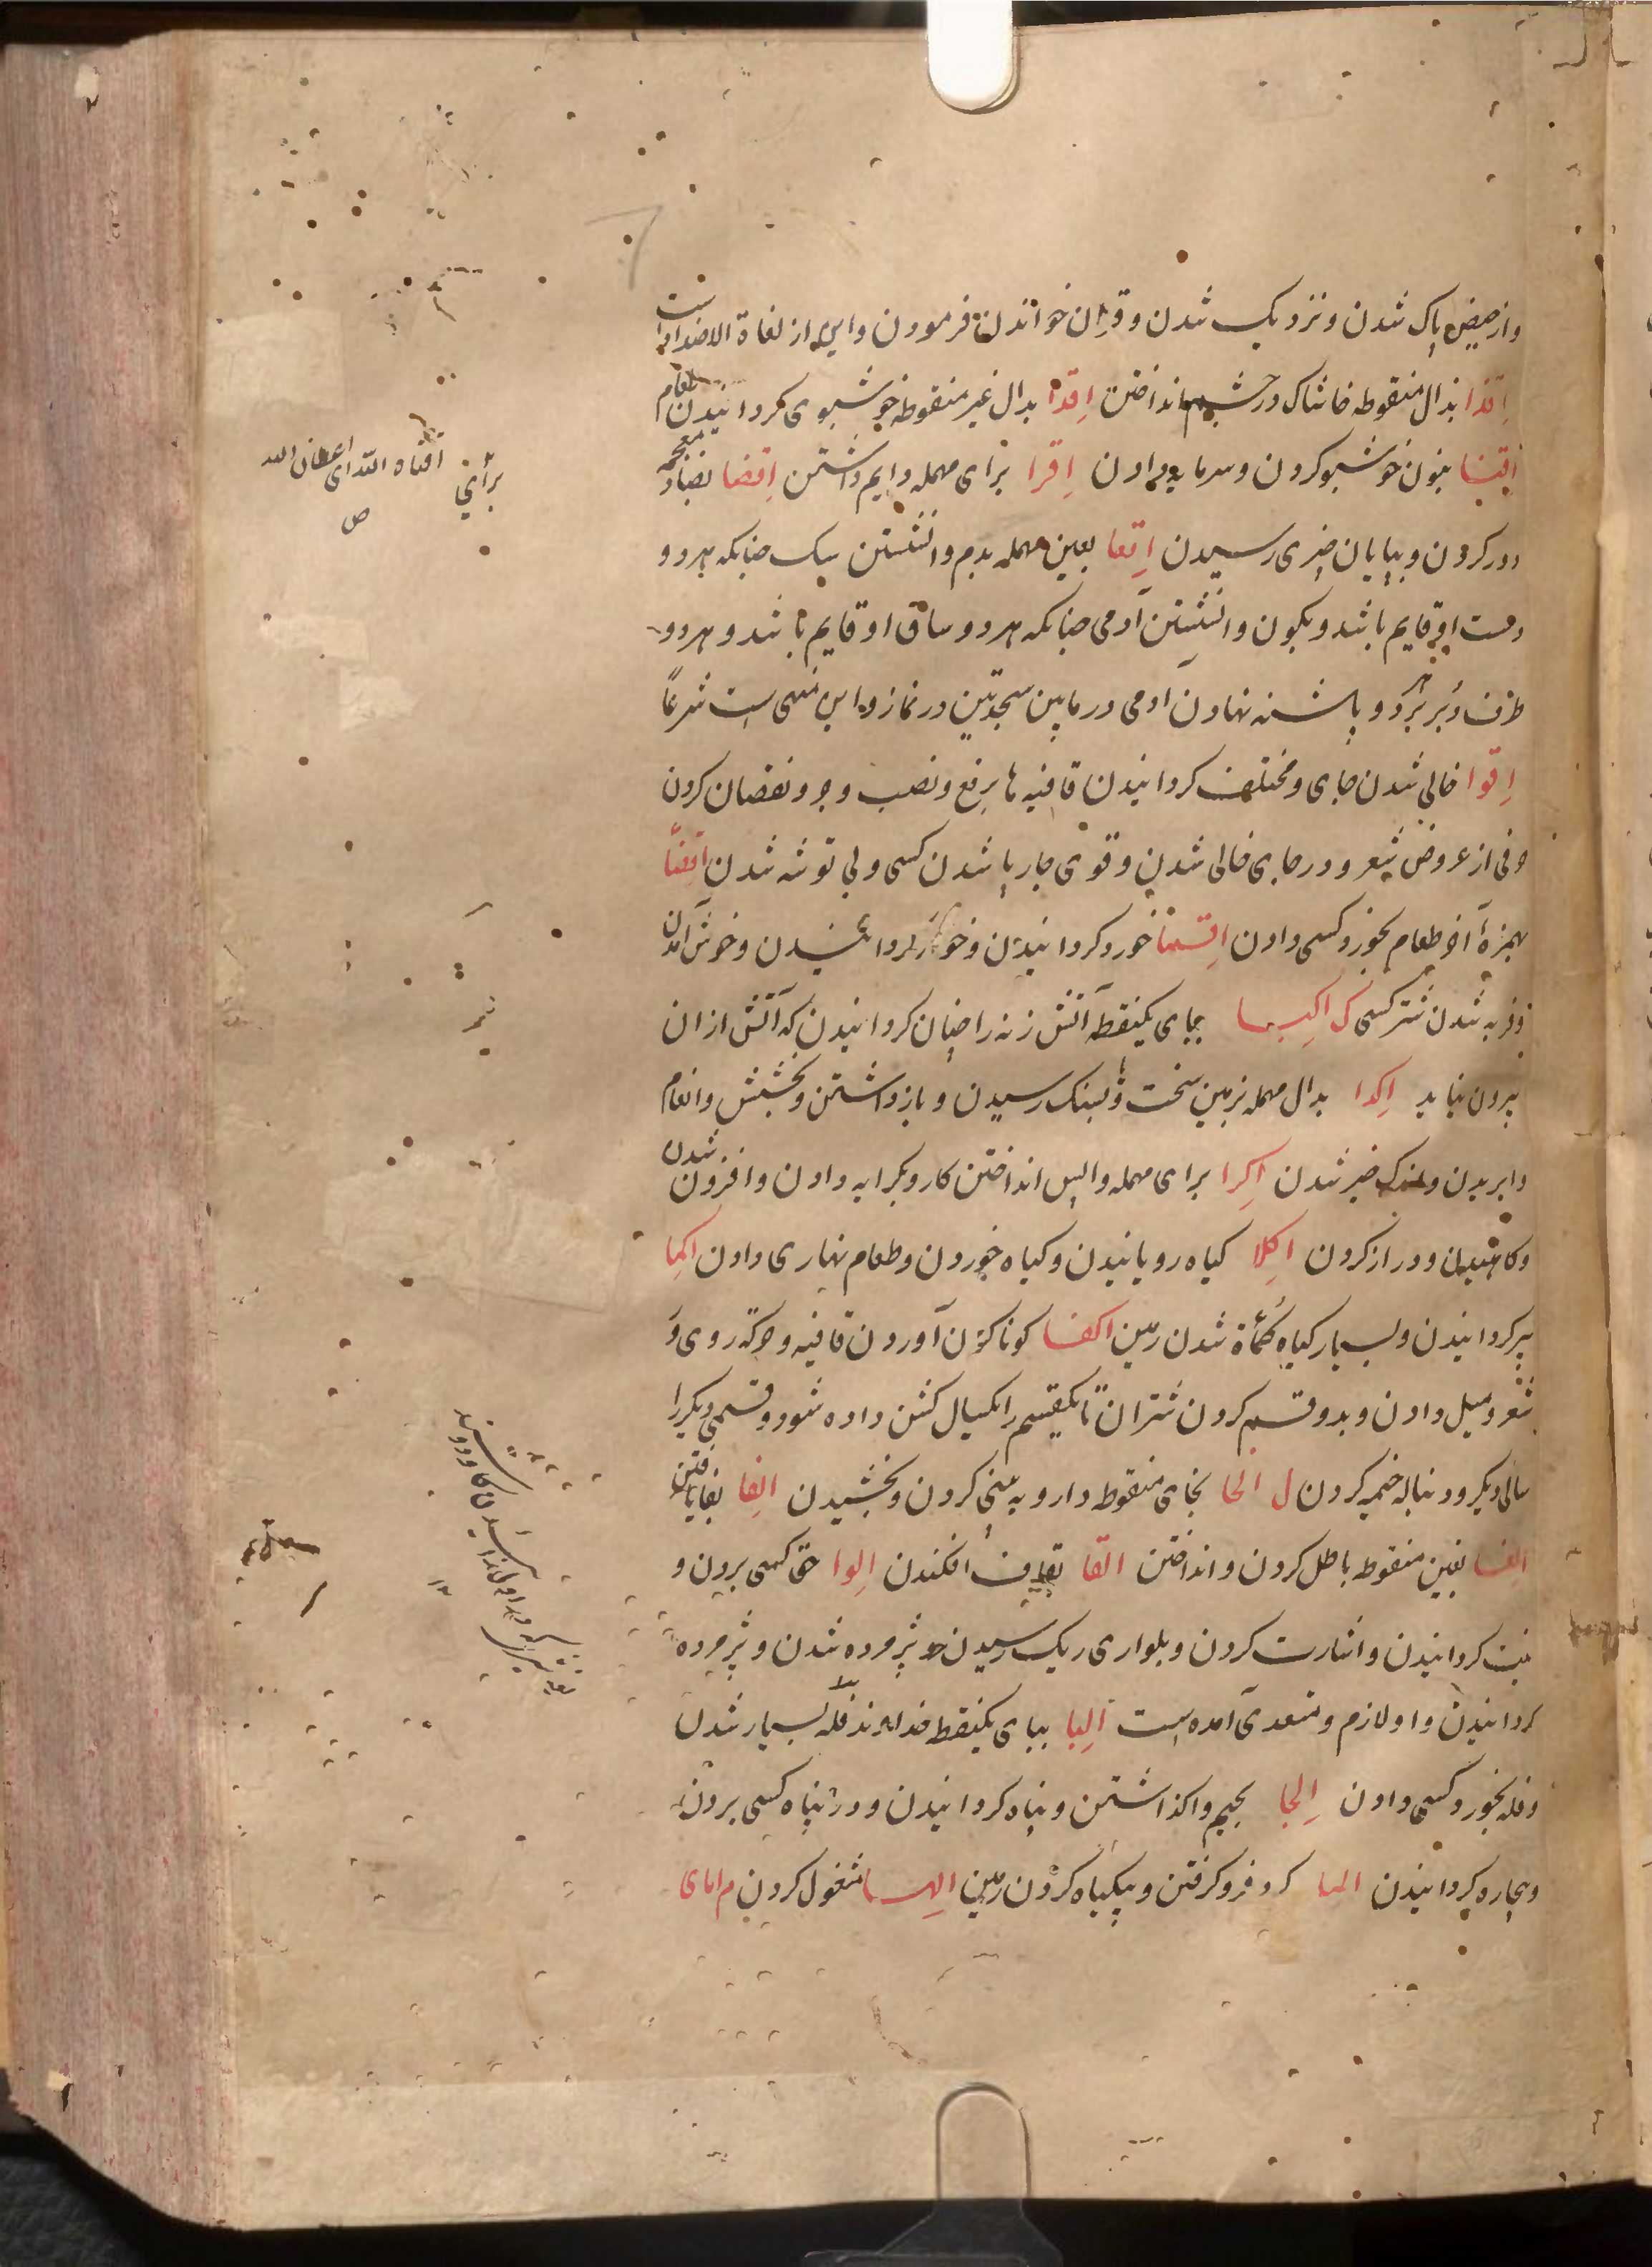 واز حیض پاک شدن ونزدیک شدن وقران خواندن فرمودن واین از لغاة الاضدادست
اِقذا بذال منقوطه خاشاک در چشم انداختن اِقدا بدال غیر منقوطه خوشبوی کردانیدن طعام
اِقنا بنون خوشبو کردن وسرمایه دادن اِقرا برای مهمله دایم داشتن اِقضا بضاد معجمه
دور کردن وبپایان چیزی رسیدن اِقعا بعین مهمله بدم وانشستن سک چنانکه هر دو
دست او قایم باشد وبکون وانشستن آدمی چنانکه هر دو ساق او قایم باشد و هر دو
طرف دبر بر دو پاشنه نهادن آدمی در مابین سجدتین در نماز واین منهی است شرعاً
اِقوا خالی شدن جای ومختلف کردانیدن قافیه ها برفع ونصب وجر ونقصان کردن
حرفی از عروض شعر ودر جای خالی شدن وقوی چارپا شدن کسی وبی توشه شدن
بهمزهٔ آخر طعام بخورد کسی دادن خورد کردانیدن وخوار کردانیدن وخوش آمدن
وفربه شدن شتر کسی ک اکبا ببای یکنقطه آتش زنه را چنان کردانیدن که آتش ازان
بیرون نیاید اِکدا بدال مهمله بزمین سخت وبسنک رسیدن وباز داشتن وبخشش وانعام
وابریدن واندک خیر شدن اِکرا برای مهمله واپس انداختن کار وبکرایه دادن وافزون شدن
وکاهیدن ودراز کردن اِکلا کیاه رویانیدن وکیاه خوردن وطعام نهاری دادن اِکما
پیر کردانیدن وبسیار کیاه کمأة شدن زمین اکفا کوناکون آوردن قافیه وحرکه روی و
شعر ومیل دادن وبدو قسم کردن شتران تا یکقسم را یکسال کشن داده شود وقسمی دیکر را
سالی دیکر ودنباله خیمه کردن ل الخا بخای منقوطه دارو به بینی کردن وبخشیدن الِفا بفا یافتن
اِلغا بغین منقوطه باطل کردن وانداختن القا بقاف افکندن اِلوا حق کسی بردن و
پست کردانیدن واشارت کردن وبلوای ریک رسیدن وپژمرده شدن وپژمرده
کردانیدن واو لازم ومتعدی آمده است اِلبا ببای یکنقطه خداوند فله بسیار شدن
وفله بخورد کسی دادن اِلجا بجیم واکذاشتن وپناه کردانیدن ودر پناه کسی بردن
وبیچاره کردانیدن الما کرد فرو کرفتن وبیکیاه کردن زمین الِهـا مشغول کردن م امای
اقناه الله ای اعطاه الله
ص